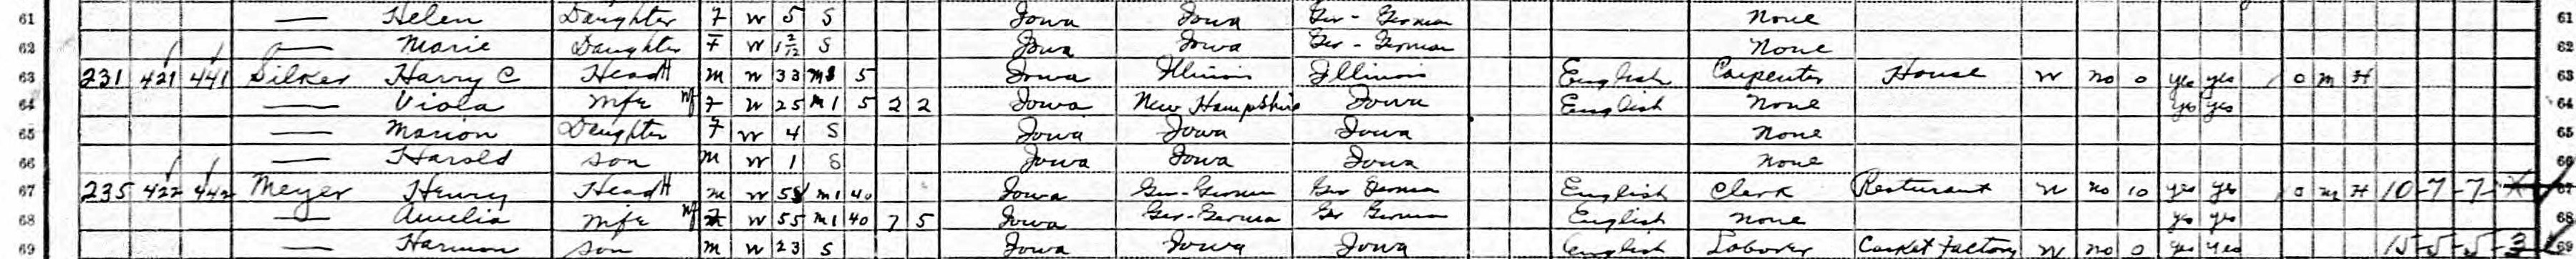 61 — Helen Daughter F W 5 S Iowa Iowa Ger - German None 61
62 — Marie Daughter F W 1 2/12 S Iowa Iowa Ger - German None 62
63 231 421 441 Silker Harry C Head H M W 33 M1 5 Iowa Illinois Illinois English Carpenter House W no 0 yes yes O M H 63
64 — Viola Wife F W 25 M1 5 2 2 Iowa New Hampshire Iowa English None yes yes 64
65 — Marion Daughter F W 4 S Iowa Iowa Iowa None 65
66 — Harold Son M W 1 S Iowa Iowa Iowa None 66
67 235 422 442 Meyer Henry Head H M W M1 40 Iowa Ger-German Ger German English Clerk Resturant W no 10 yes yes O M H 10-7-7- 67
68 — Amelia Wife F W 55 M1 40 7 5 Iowa Ger-German Ger German English None yes yes 68
69 — Harmon Son M W 23 S Iowa Iowa Iowa English Laborer Casket Factory W no 0 yes yes 15-5-5-3 69